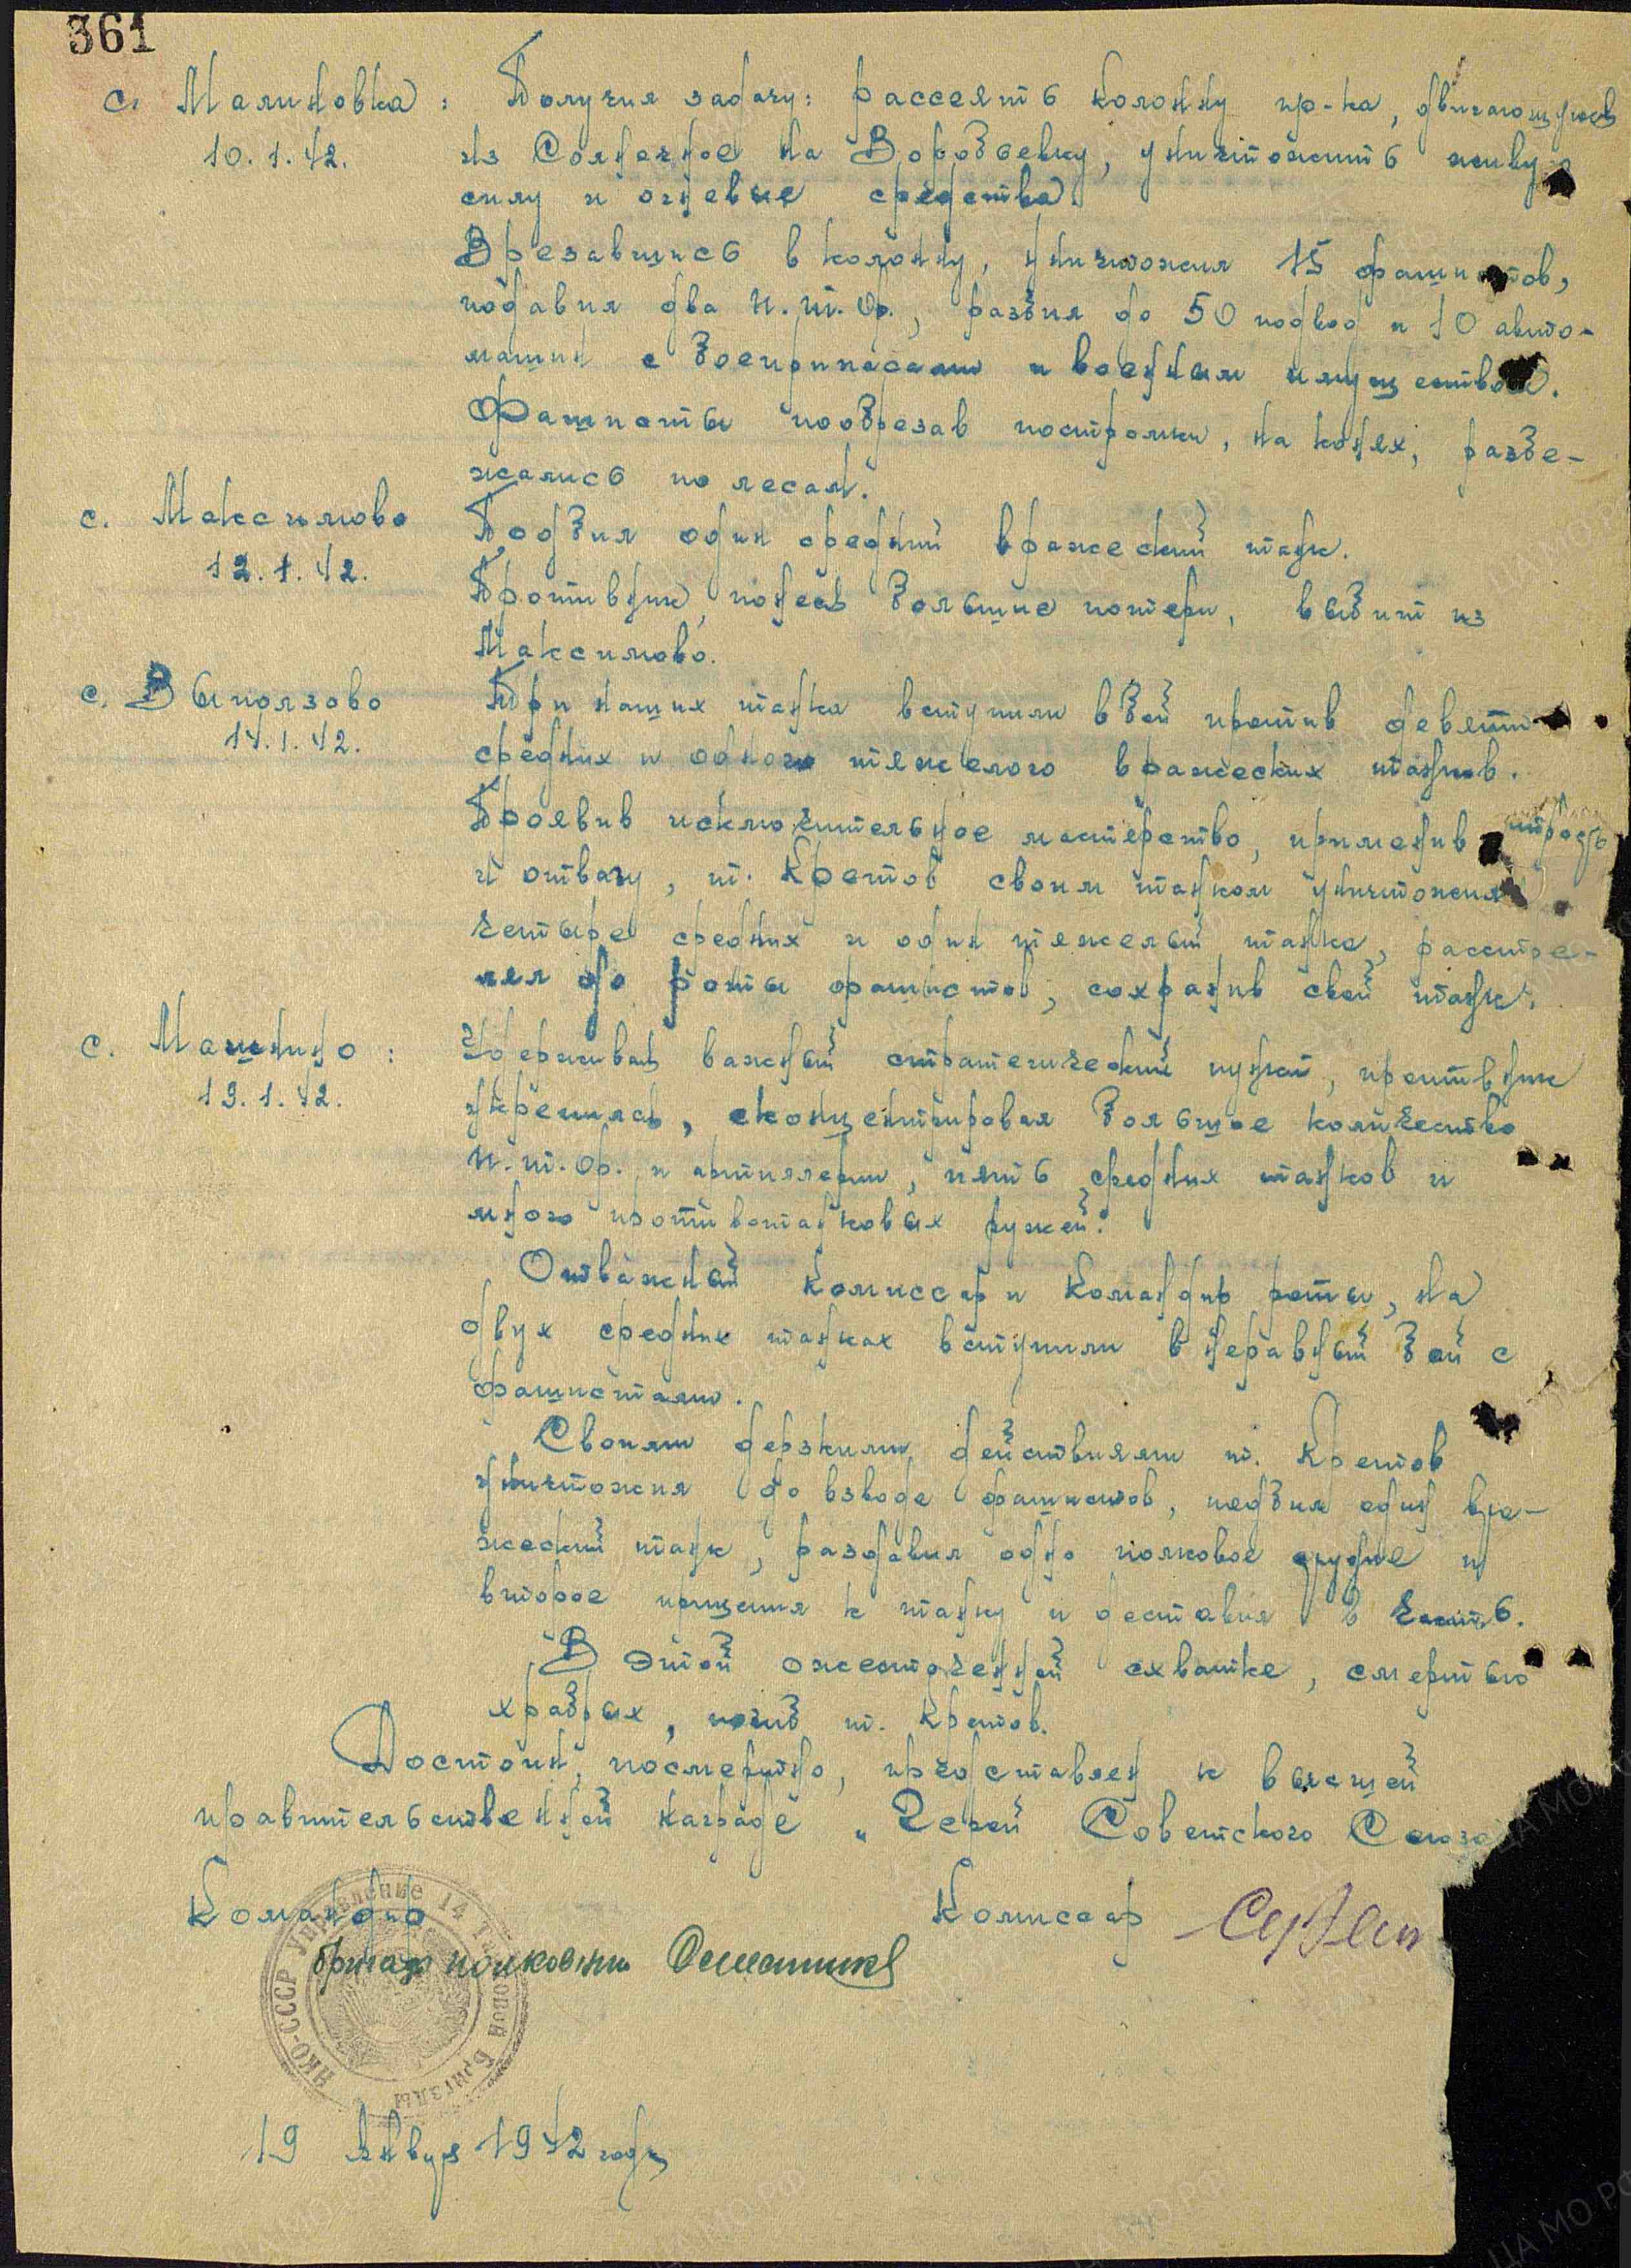 361
с. Малиновка: Получил задачу: рассеять колонну пр-ка, двигающуюся
10.1.42. из Солнечное на Воробьевку, уничтожить живую
силу и огневые средства.
Врезавшись в колонну, уничтожил 15 фашистов,
подавил два п.т.ор., разбил до 50 подвод и 10 авто-
машин с боеприпасами и военным имуществом.
Фашисты подрезав постромки, на конях, разбе-
жались по лесам.
с. Максимово Подбил один средний вражеский танк.
12.1.42. Противник, понеся большие потери, выбит из
Максимово.
с. Выползово Три наших танка вступили в бой против девяти
14.1.42. средних и одного тяжелого вражеских танков.
Проявив исключительное мастерство, применив
и отвагу, т. Кретов своим танком уничтожил
четыре средних и один тяжелый танк, расстре-
лял до роты фашистов, сохранив свой танк.
с. Машкино: Удерживая важный стратегический пункт, противник
19.1.42. укрепился, сконцентрировал большое количество
п.т.ор. и артиллерии, пять средних танков и
много противотанковых ружей.
Отважный комиссар и командир роты, на
двух средних танках вступили в неравный бой с
фашистами.
Своими дерзкими действиями т. Кретов
уничтожил до взвода фашистов, подбил один вра-
жеский танк, раздавил одно полковое орудие и
второе прицепил к танку и доставил в часть.
В этой ожесточенной схватке, смертью
храбрых, погиб т. Кретов.
Достоин, посмертно, представлен к высшей
правительственной награде „Герой Советского Союза
Командир Комиссар
бригады полковник
НКО-СССР Управление 14 Танковой Бригады
19 Января 1942 года